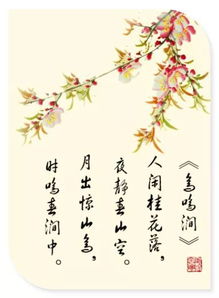 《鸟鸣涧》
人闲桂花落，
夜静春山空。
月出惊山鸟，
时鸣春涧中。